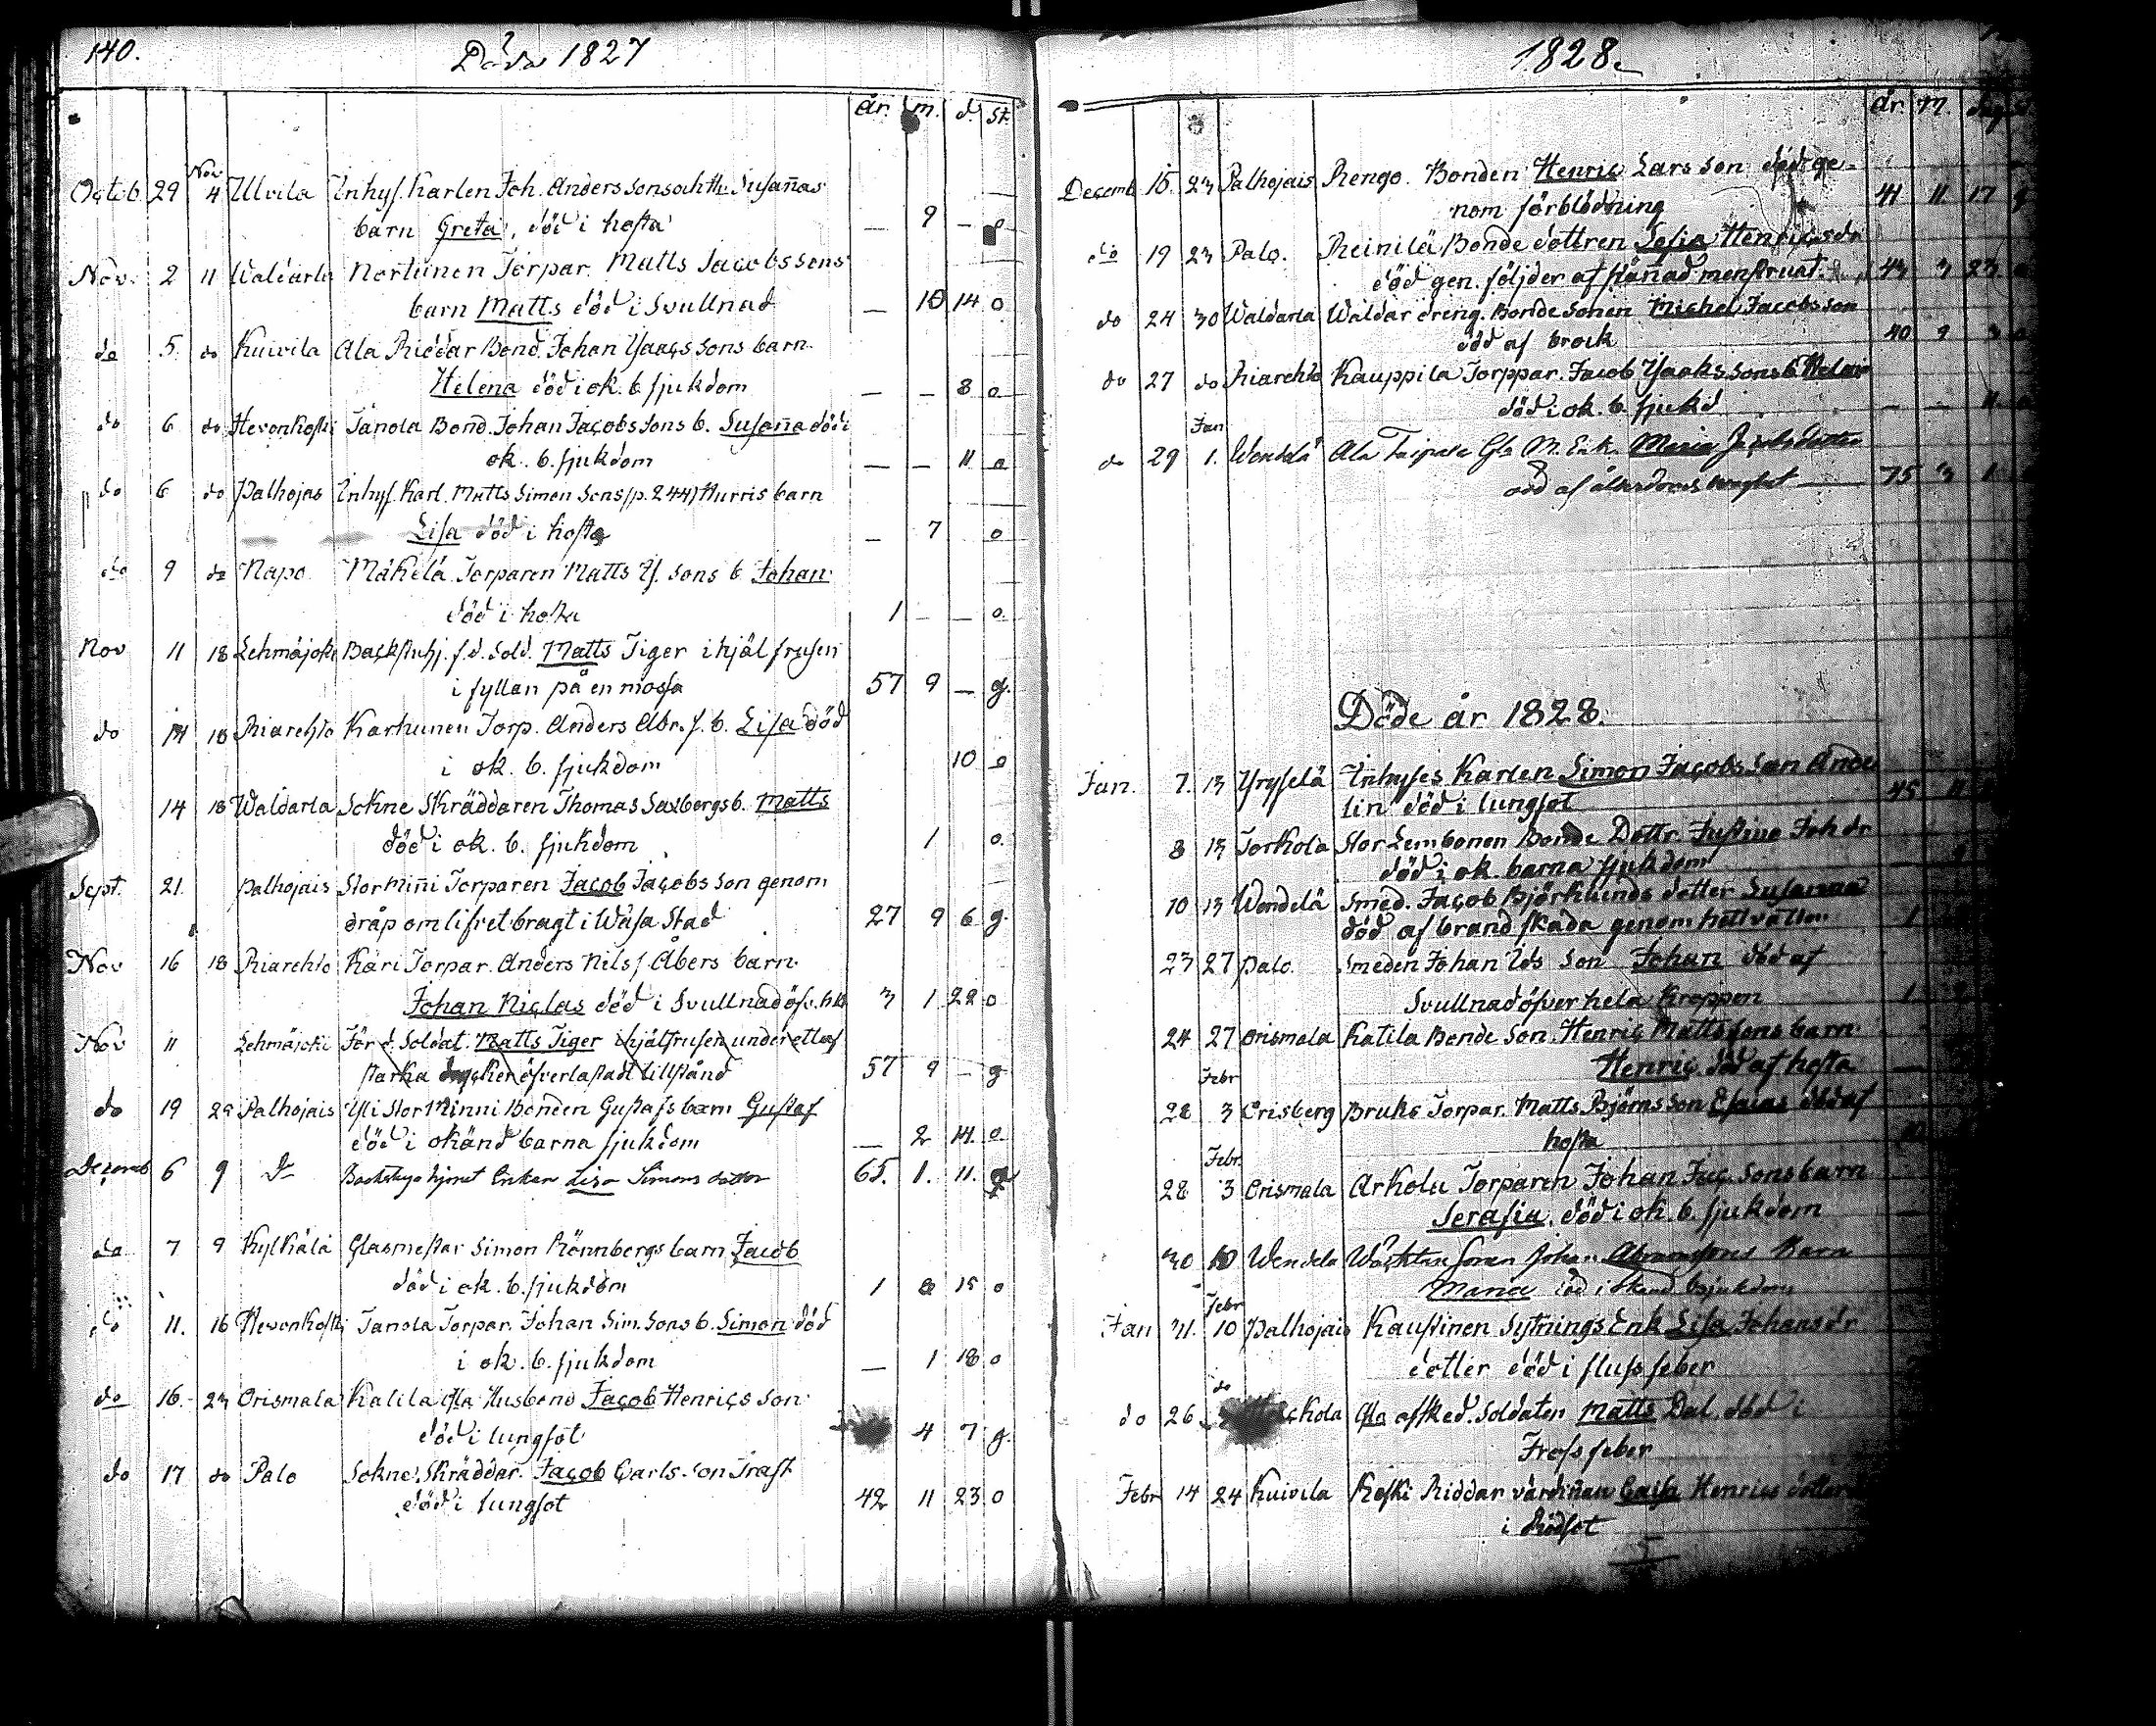 140.
Döda 1827
år. m. d. st.
Octob. 29 Nov 4 Ulvila Inhys. Karlen Joh. Anderssons och Hu. Susañas
barn Greta, död i hosta — 9 — o
Nov. 2 11 Waldarla Nortunen Torpar. Matts Jacobssons
barn Matts död i Svullnad — 10 14 o
do 5. do Kuivila Ala Riddar Bond. Johan Ysaacs Sons barn
Helena död i ok. b. sjukdom — — 8 o
do 6 do Hevonkoski Tanola Bond. Johan Jacobs Sons b. Susaña död i
ok. b. sjukdom — — 11 o
do 6 do Palhojas Inhys. Karl. Matts Simon Sons (p. 244) Hurris barn
Lisa död i hosta — 7 o
do 9 do Napo Mäkelä Torparen Matts Ys. Sons b Johan
död i hosta 1 — — o
Nov 11 18 Lehmäjoki Backstuhj. f.d. Sold. Matts Tiger ihjäl frusen
i fyllan på en mossa 57 9 — g.
do 14 18 Riarehto Karhunen Torp. Anders Abr. s. b. Lisa död
i ok. b. sjukdom 10 o
14 18 Waldarla Sokne Skräddaren Thomas Saxbergs b. Matts
död i ok. b. sjukdom 1 o.
Sept. 21. Palhojais Stor Miñi Torparen Jacob Jacobs Son genom
dråp om lifvet bragt i Wasa Stad 27 9 6 g.
Nov 16 18 Riarehto Kari Torpar. Anders Nils s. Åbers barn
Johan Niclas död i Svullnad öfv. 3 1 22 o
Nov 11 Lehmäjoki För d. Soldat. Matts Tiger ihjälfrusen under ett af
starka drycker öfverlastadt tillstånd 57 9 — g
do 19 Palhojais Yli Stor Minni Bonden Gustafs barn Gustaf
död i okänd barna sjukdom — 2 14. o.
Decemb 6 9 Do Backstugohjonet Enkan Lisa Simons dotter 65. 1. 11.
do 7 9 Kylkälä Glasmestar Simon Rönnbergs barn Jacob
död i ok. b. sjukdom 1 8 15 o
do 11. 16 Hevonkoski Tanola Torpar. Johan Sim. Sons b. Simon död
i ok. b. sjukdom — 1 18 o
do 16. 23 Orismala Katila Gla Husbond Jacob Henrics Son
död i lungsot 4 7 g.
do 17 do Palo Sokne Skräddar. Jacob Carls. son Trast
död i lungsot 42 11 23 o
1828.
år. m.
Decemb 15. 23 Palhojais Rengo. Bonden Henric Lars Son död ge-
nom förblödning 41 11 17 g
do 19 23 Palo. Reinilä Bonde dottren Sofia Henricsdr
död gen. följder af häñad menstruat. 43 3 23
do 24 30 Waldarla Waldar dreng. Bonde Sonen Michel Jacobs son
död af brock 40 9 3
do 27 do Riarehto Kauppila Torppar. Jacob Ysaks. sons b. Helena
död i ok. b. sjukd — — 11
do 29 Jan 1. Wendelä Ala Taipale Gla M. Enk. Maria Jacobsdotter
död af ålderdoms svaghet 75 3 1
Döde år 1828.
Jan. 7. 13 Yryselä Inhyses Karlen Simon Jacobs Son Ande
lin död i lungsot 45 11
8 13 Torkola Stor Lembonen Bonde Dottr. Justina Joh dr
död i ok barna sjukdom
10 13 Wendelä Smed. Jacob Björklunds dotter Susanna
död af brandskada genom hett vatten 1
23 27 Palo. Smeden Johan Ids Son Johan död af
Svullnad öfver hela kroppen 1
24 27 Orismala Katila Bonde Son. Henric Mattssons barn
Henric död af hosta —
28 Febr 3 Orisberg Bruks Torpar. Matts Björns Son Esaias död af
hosta
28 Febr. 3 Orismala Arkola Torparen Johan Jac. Sons barn
Serafia. död i ok. b. sjukdom —
30 10 Wendelä Johan Abramssons Barn
Maria död i okänd b sjukdom
Jan 31. Febr 10 Palhojais Kaustinen Sytnings Enk Lisa Johansdr
dotter död i fluss feber
do 26 do Gla afsked. Soldaten Matts Dal. död i
Frossfeber
Febr 14 24 Kuivila Keski Riddar värdiñan Caisa Henrics dotter
i Rödsot